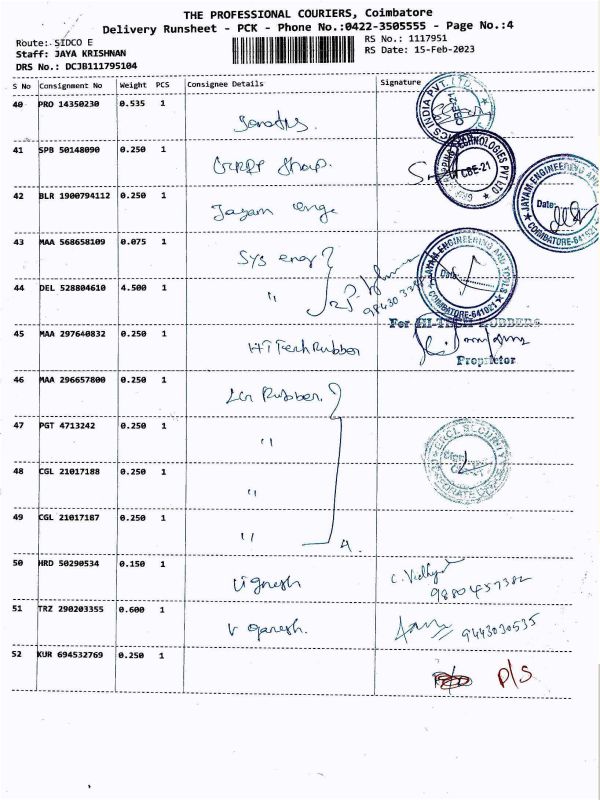 THE PROFESSIONAL COURIERS, Coimbatore
Delivery Runsheet - PCK - Phone No.:0422-3505555 - Page No.:4
Route: SIDCO E
RS No.: 1117951
Staff: JAYA KRISHNAN
RS Date: 15-Feb-2023
DRS No.: DCJB111795104
S No Consignment No Weight PCS Consignee Details Signature
40 PRO 14350230 0.535 1
INDIA PVT. LTD
CBE-21
41 SPB 50148090 0.250 1
TECHNOLOGIES PVT LTD
CBE-21
42 BLR 1900794112 0.250 1 Jayam enge
JAYAM ENGINEERING AND
Date:
COIMBATORE-641021
43 MAA 568658109 0.075 1 Sys eng
JAYAM ENGINEERING AND TOOLS
Date:
COIMBATORE-641021
44 DEL 528804610 4.500 1 "
For HI-TECH RUBBERS
45 MAA 297640832 0.250 1 Hi Tech Rubber
Proprietor
46 MAA 296657800 0.250 1 Rubber.
47 PGT 4713242 0.250 1 "
SECURITY
48 CGL 21017188 0.250 1 "
49 CGL 21017187 0.250 1 " 4.
50 HRD 50290534 0.150 1 Vignesh C. Vidhya
9880457382
51 TRZ 290203355 0.600 1 V ganesh. 9443030535
52 KUR 694532769 0.250 1 D/S